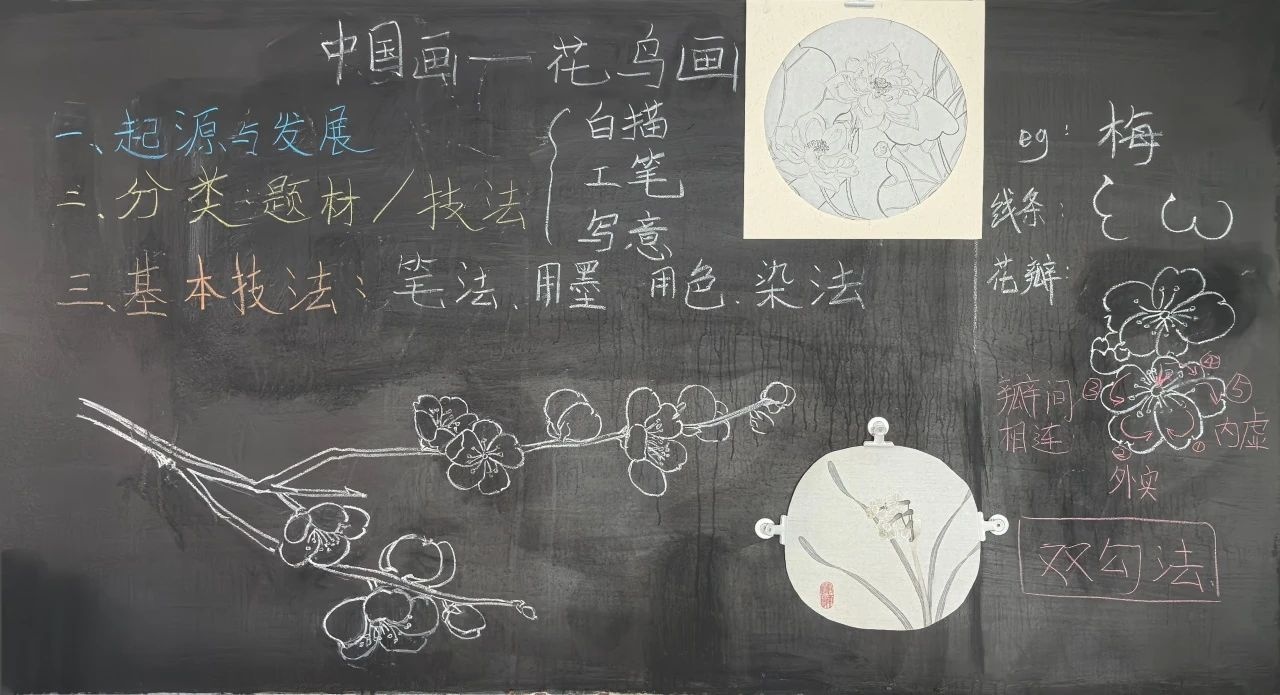 中国画一花鸟画
一、起源与发展
二、分类:题材/技法
白描
工笔
写意
三、基本技法:笔法、用墨 用色、染法
eg: 梅
线条:
花瓣:
瓣间
相连
③
④
⑤
②
①
内虚
外实
双勾法